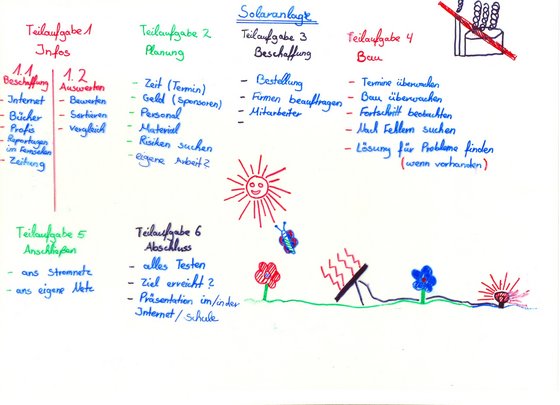 Solaranlage
Teilaufgabe 1
Infos
1.1
Beschaffung
- Internet
- Bücher
- Profis
- Reportagen
im Fernsehen
- Zeitung
1.2
Auswerten
- Bewerten
- Sortieren
- Vergleich
Teilaufgabe 2
Planung
- Zeit (Termin)
- Geld (Sponsoren)
- Personal
- Material
- Risiken suchen
- eigene Arbeit?
Teilaufgabe 3
Beschaffung
- Bestellung
- Firmen beauftragen
- Mitarbeiter
-
Teilaufgabe 4
Bau
- Termine überwachen
- Bau überwachen
- Fortschritt beobachten
- Nach Fehlern suchen
- Lösung für Probleme finden
(wenn vorhanden)
Teilaufgabe 5
Anschließen
- ans Stromnetz
- ans eigene Netz
Teilaufgabe 6
Abschluss
- alles Testen
- Ziel erreicht?
- Präsentation im/in der
Internet/Schule